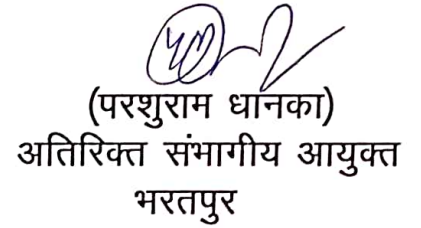 (परशुराम धानका)
अतिरिक्त संभागीय आयुक्त
भरतपुर